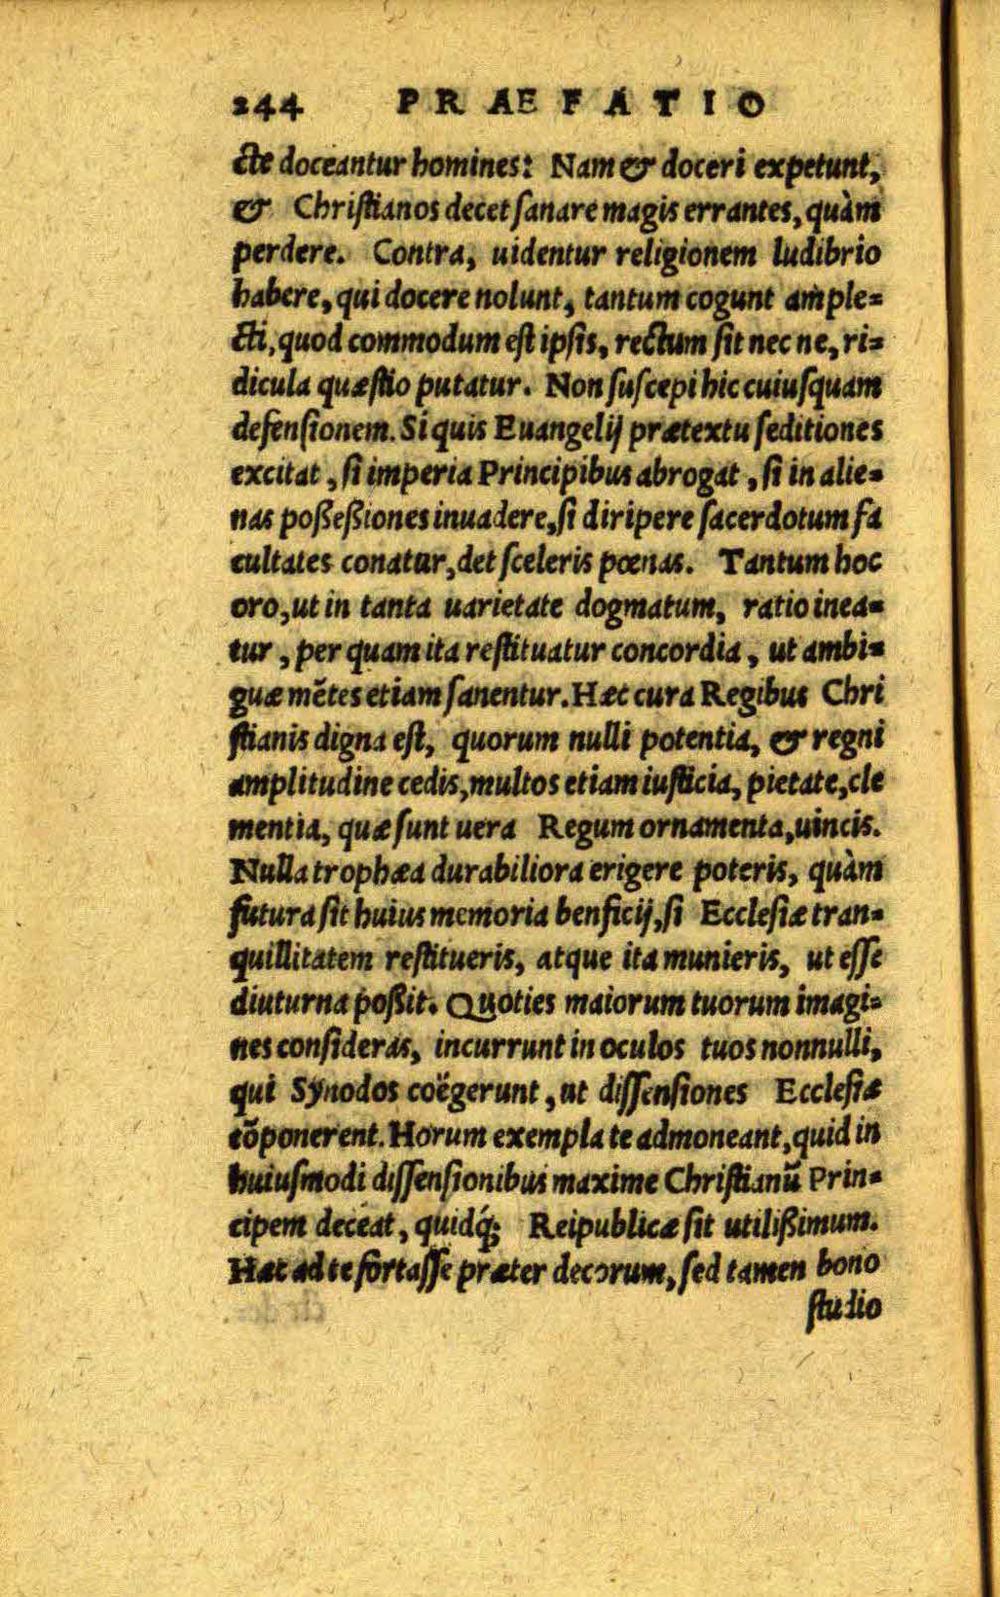 244 PRAEFATIO
cte doceantur homines: Nam & doceri expetunt,
& Christianos decet sanare magis errantes, quàm
perdere. Contra, uidentur religionem ludibrio
habere, qui docere nolunt, tantum cogunt ample=
cti, quod commodum est ipsis, rectum sit nec ne, ri=
dicula quæstio putatur. Non suscepi hic cuiusquam
defensionem. Si quis Euangelij prætextu seditiones
excitat, si imperia Principibus abrogat, si in alie=
nas poßeßiones inuadere, si diripere sacerdotum fa
cultates conatur, det sceleris pœnas. Tantum hoc
oro, ut in tanta uarietate dogmatum, ratio inea=
tur, per quam ita restituatur concordia, ut ambi=
guæ mẽtes etiam sanentur. Hæc cura Regibus Chri
stianis digna est, quorum nulli potentia, & regni
amplitudine cedis, multos etiam iusticia, pietate, cle
mentia, quæ sunt uera Regum ornamenta, uincis.
Nulla trophæa durabiliora erigere poteris, quàm
futura sit huius memoria benficij, si Ecclesiæ tran=
quillitatem restitueris, atque ita munieris, ut esse
diuturna poßit. Quoties maiorum tuorum imagi=
nes consideras, incurrunt in oculos tuos nonnulli,
qui Synodos coëgerunt, ut dissensiones Ecclesiæ
cõponerent. Horum exempla te admoneant, quid in
huiusmodi dissensionibus maxime Christianũ Prin=
cipem deceat, quidq́; Reipublicæ sit utilißimum.
Hæc ad te fortasse præter decorum, sed tamen bono
studio